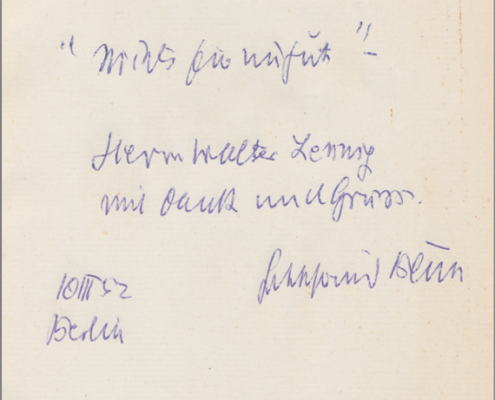 "Nichts für ungut"–
Herrn Walter Lennig
mit Dank und Gruss.
Gottfried Benn
10 III 52
Berlin